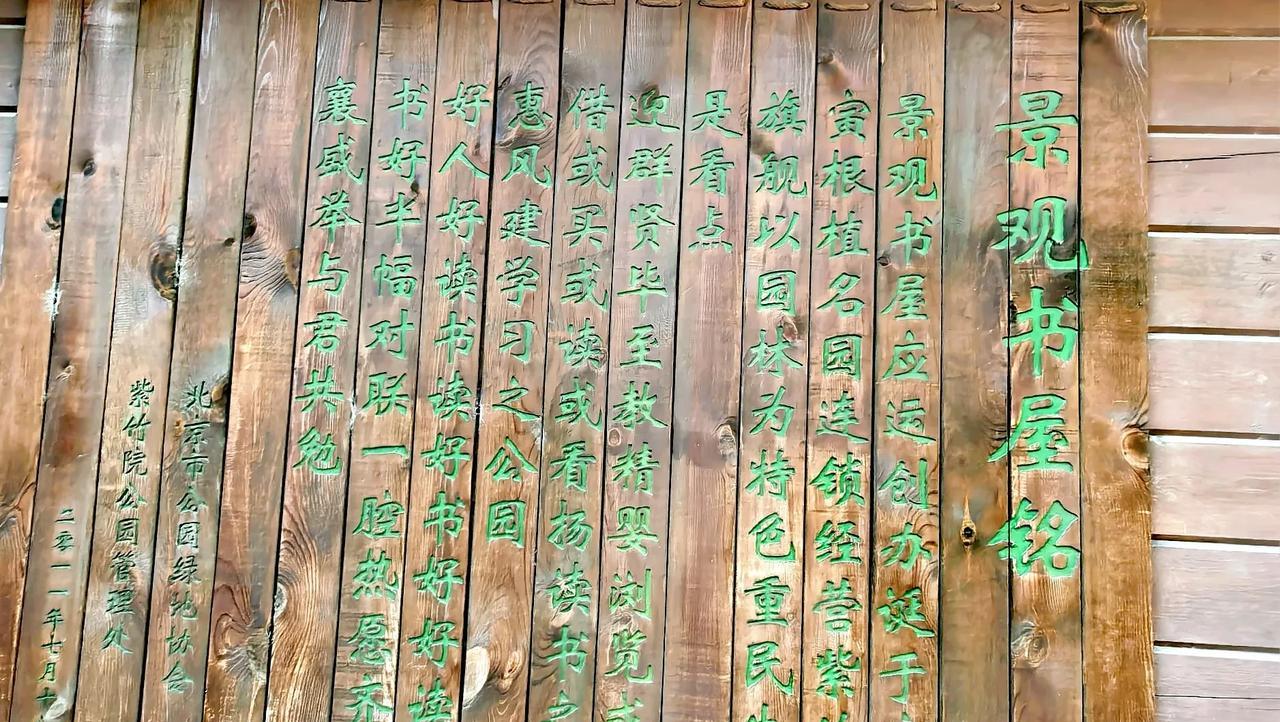 景观书屋铭
景观书屋应运创办诞于
寅根植名园连锁经营紫
旗舰以园林为特色重民
是看点
迎群贤毕至教精婴浏览或
借或买或读或看扬读书之
惠风建学习之公园
好人好读书读好书好好读
书好半幅对联一腔热愿齐
襄盛举与君共勉
北京市公园绿地协会
紫竹院公园管理处
二零一一年七月十